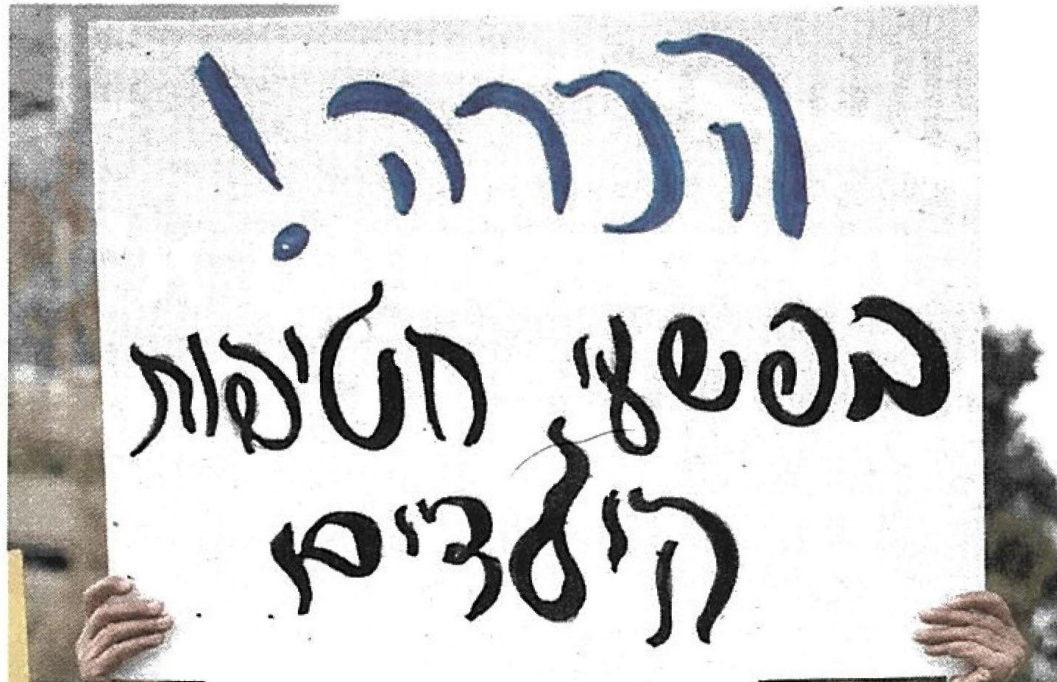 הכרה!
בפשעי חטיפות
הילדים